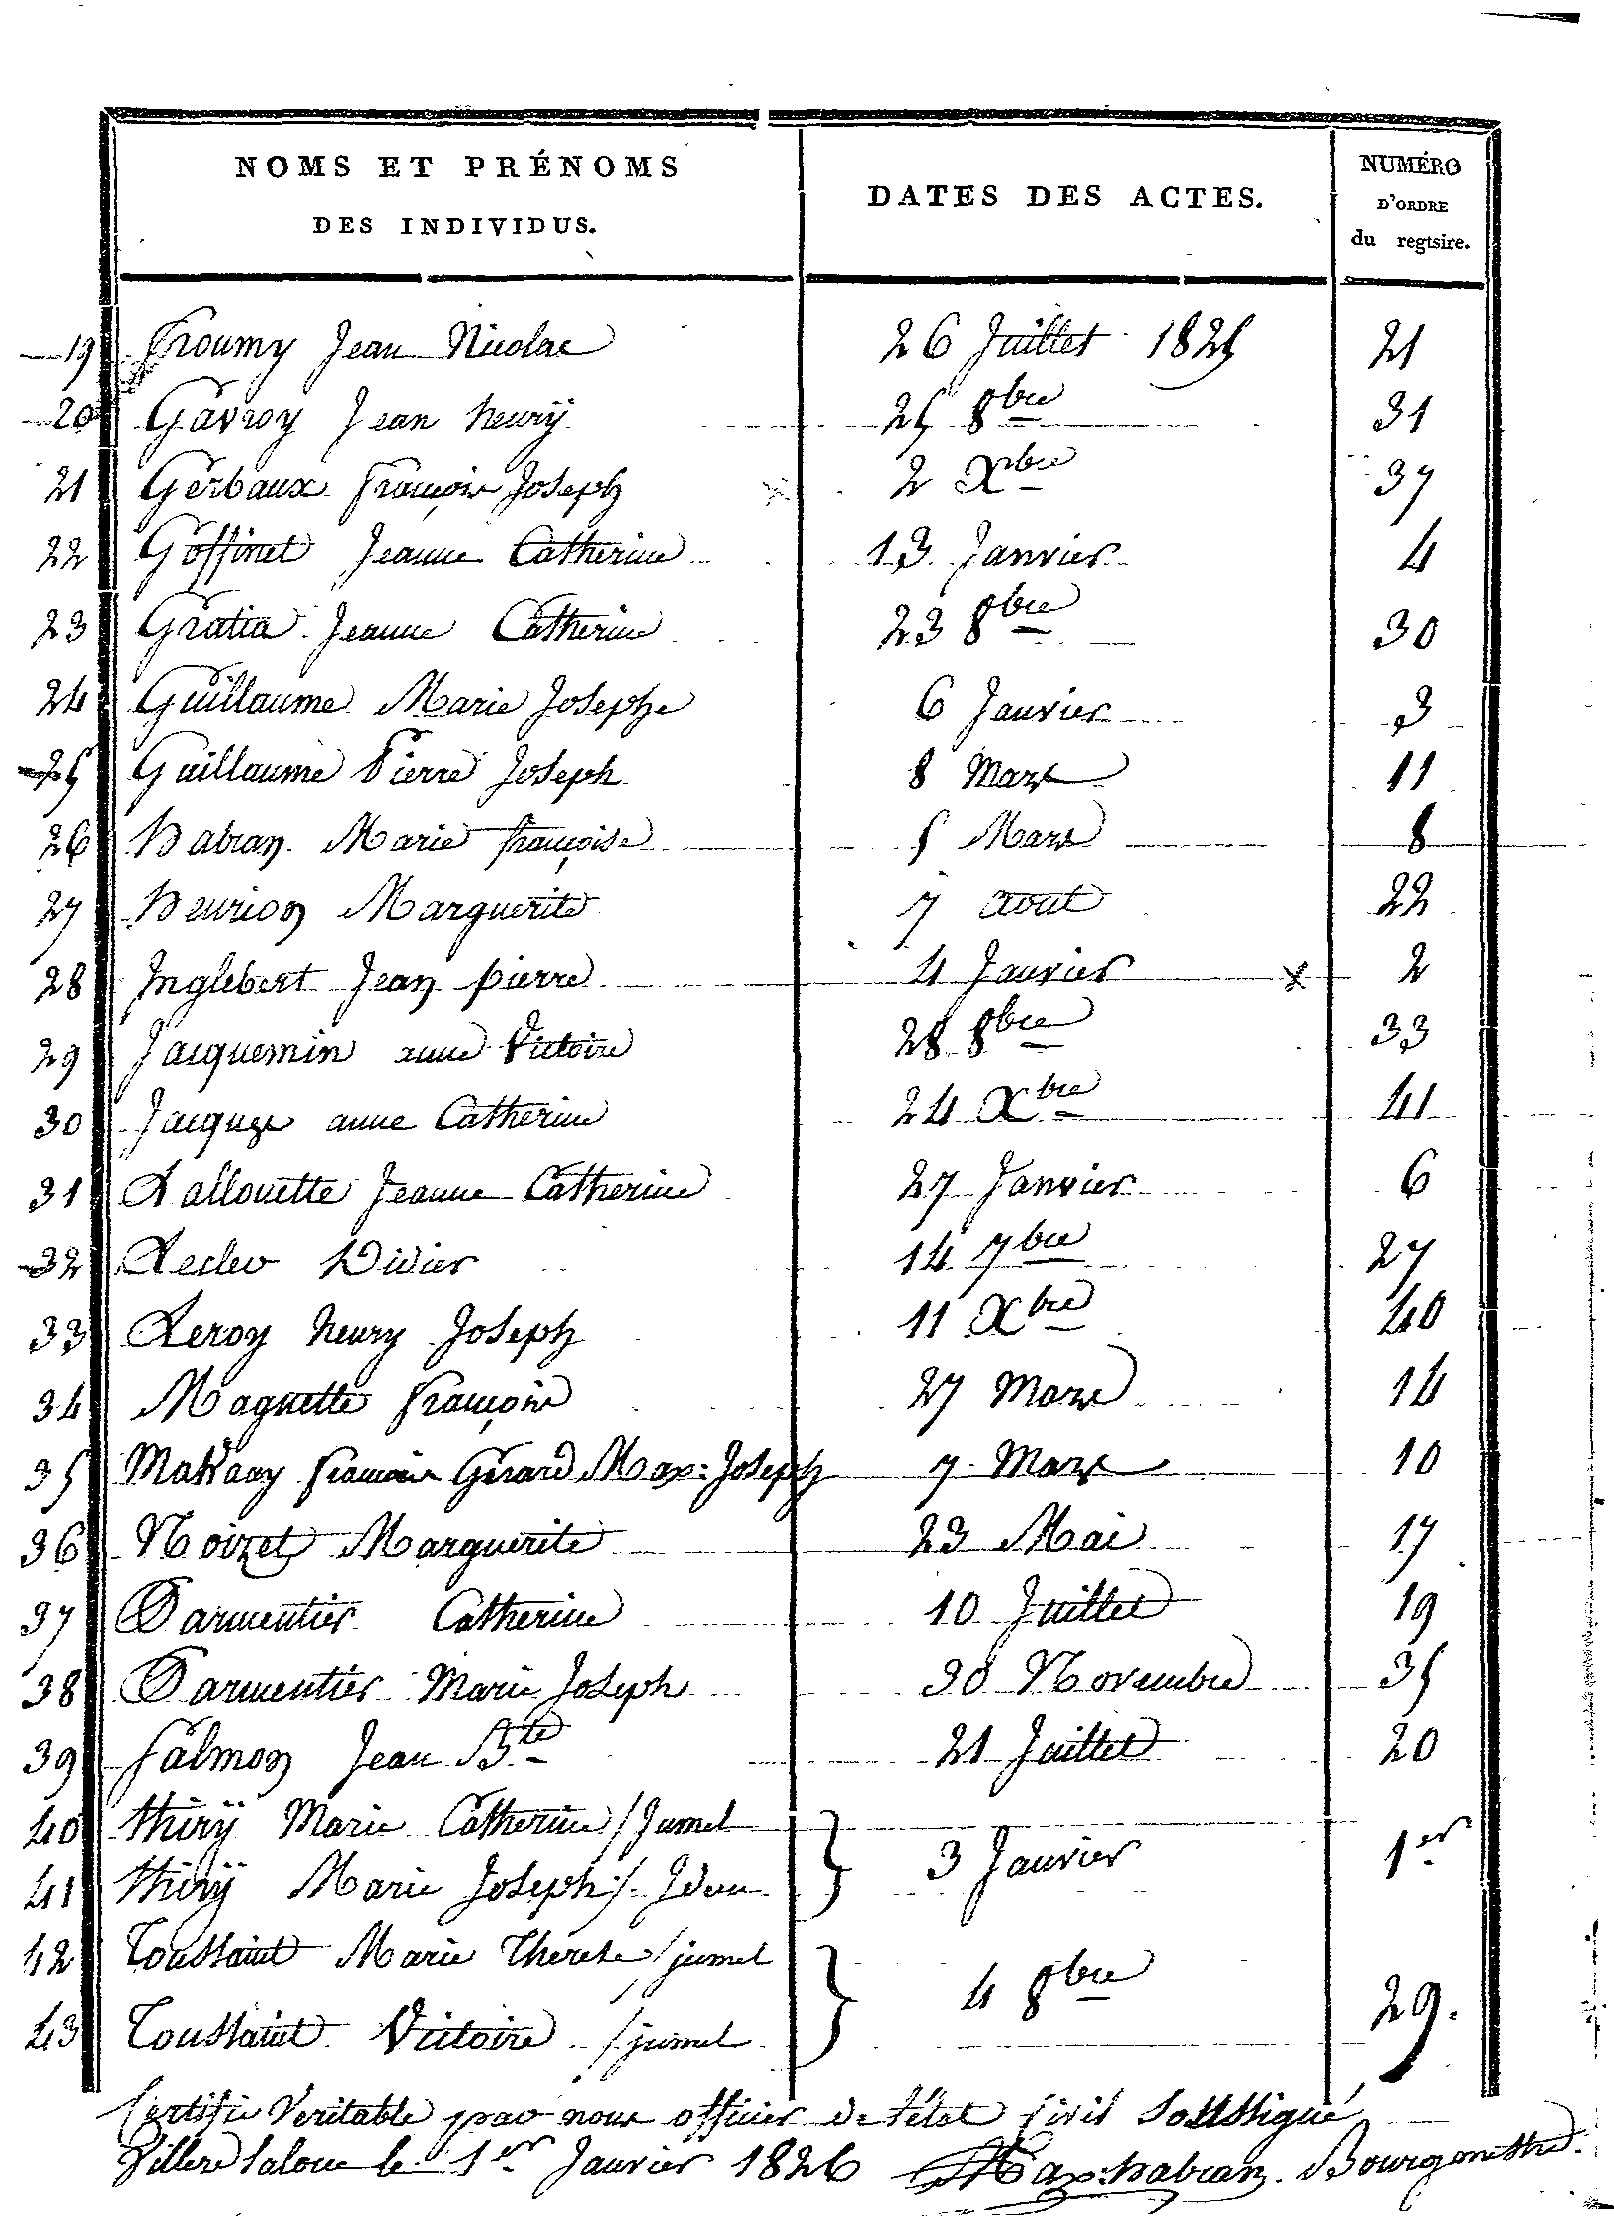 NOMS ET PRÉNOMS
DES INDIVIDUS.
DATES DES ACTES.
NUMÉRO
D'ORDRE
du regtsire.
19 Froumy Jean Nicolas 26 Juillet 1825 21
20 Gavroy Jean henrÿ 25 8bre 31
21 Gerbaux françois Joseph 2 Xbre 37
22 Goffinet Jeanne Catherine 13 Janvier 4
23 Gratia Jeanne Catherine 23 8bre 30
24 Guillaume Marie Josephe 6 Janvier 3
25 Guillaume Pierre Joseph 8 Mars 11
26 Habran Marie françoise 5 Mars 8
27 Henrion Marguerite 7 aout 22
28 Inglebert Jean pierre 4 Janvier 2
29 Jacquemin anne Victoire 28 8bre 33
30 Jacques anne Catherine 24 Xbre 41
31 Lallouette Jeanne Catherine 27 Janvier 6
32 Didier 14 7bre 27
33 Leroy henry Joseph 11 Xbre 40
34 Maguette françois 27 Mars 14
35 françois Gerard Max: Joseph 7 Mars 10
36 Noizet Marguerite 23 Mai 17
37 Parmentier Catherine 10 Juillet 19
38 Parmentier Marie Joseph 30 Novembre 35
39 Salmon Jean Bte 21 Juillet 20
40 thirÿ Marie Catherine / Jumel
41 thirÿ Marie Joseph / Idem } 3 Janvier 1er
42 Toussaint Marie Therese / jumel
43 Toussaint Victoire / jumel } 4 8bre 29.
Certifié Veritable par nous officier de l'état civil Soussigné
Villers la loue le 1er Janvier 1826 Max: habran Bourgmestre.